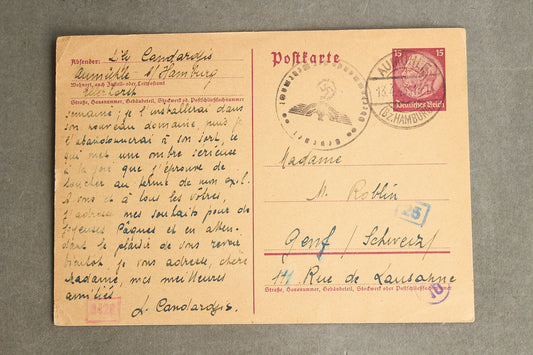 Absender: Léo Candargis
Aumühle b/Hamburg
Wohnort, auch Zustell- oder Leitpostamt
Straße, Hausnummer, Gebäudeteil, Stockwerk od. Postschließfachnummer
semaine; je l'installerai dans
son nouveau domaine, puis je
l'abandonnerai à son sort, ce
qui met une ombre sérieuse
à la joie que j'éprouve de
toucher au terme de mon exil.
A vous et à tous les vôtres,
j'adresse mes souhaits pour de
joyeuses Pâques et en atten-
dant le plaisir de vous revoir
bientôt, je vous adresse, chère
Madame, mes meilleures
amitiés.
L. Candargis.
Postkarte
15 15
Deutsches Reich
AUMÜHLE
(BZ HAMBURG)
Madame
M. Roblin
25
Genf / Schweiz /
14 Rue de Lausanne
Straße, Hausnummer, Gebäudeteil, Stockwerk oder Postschließfachnummer